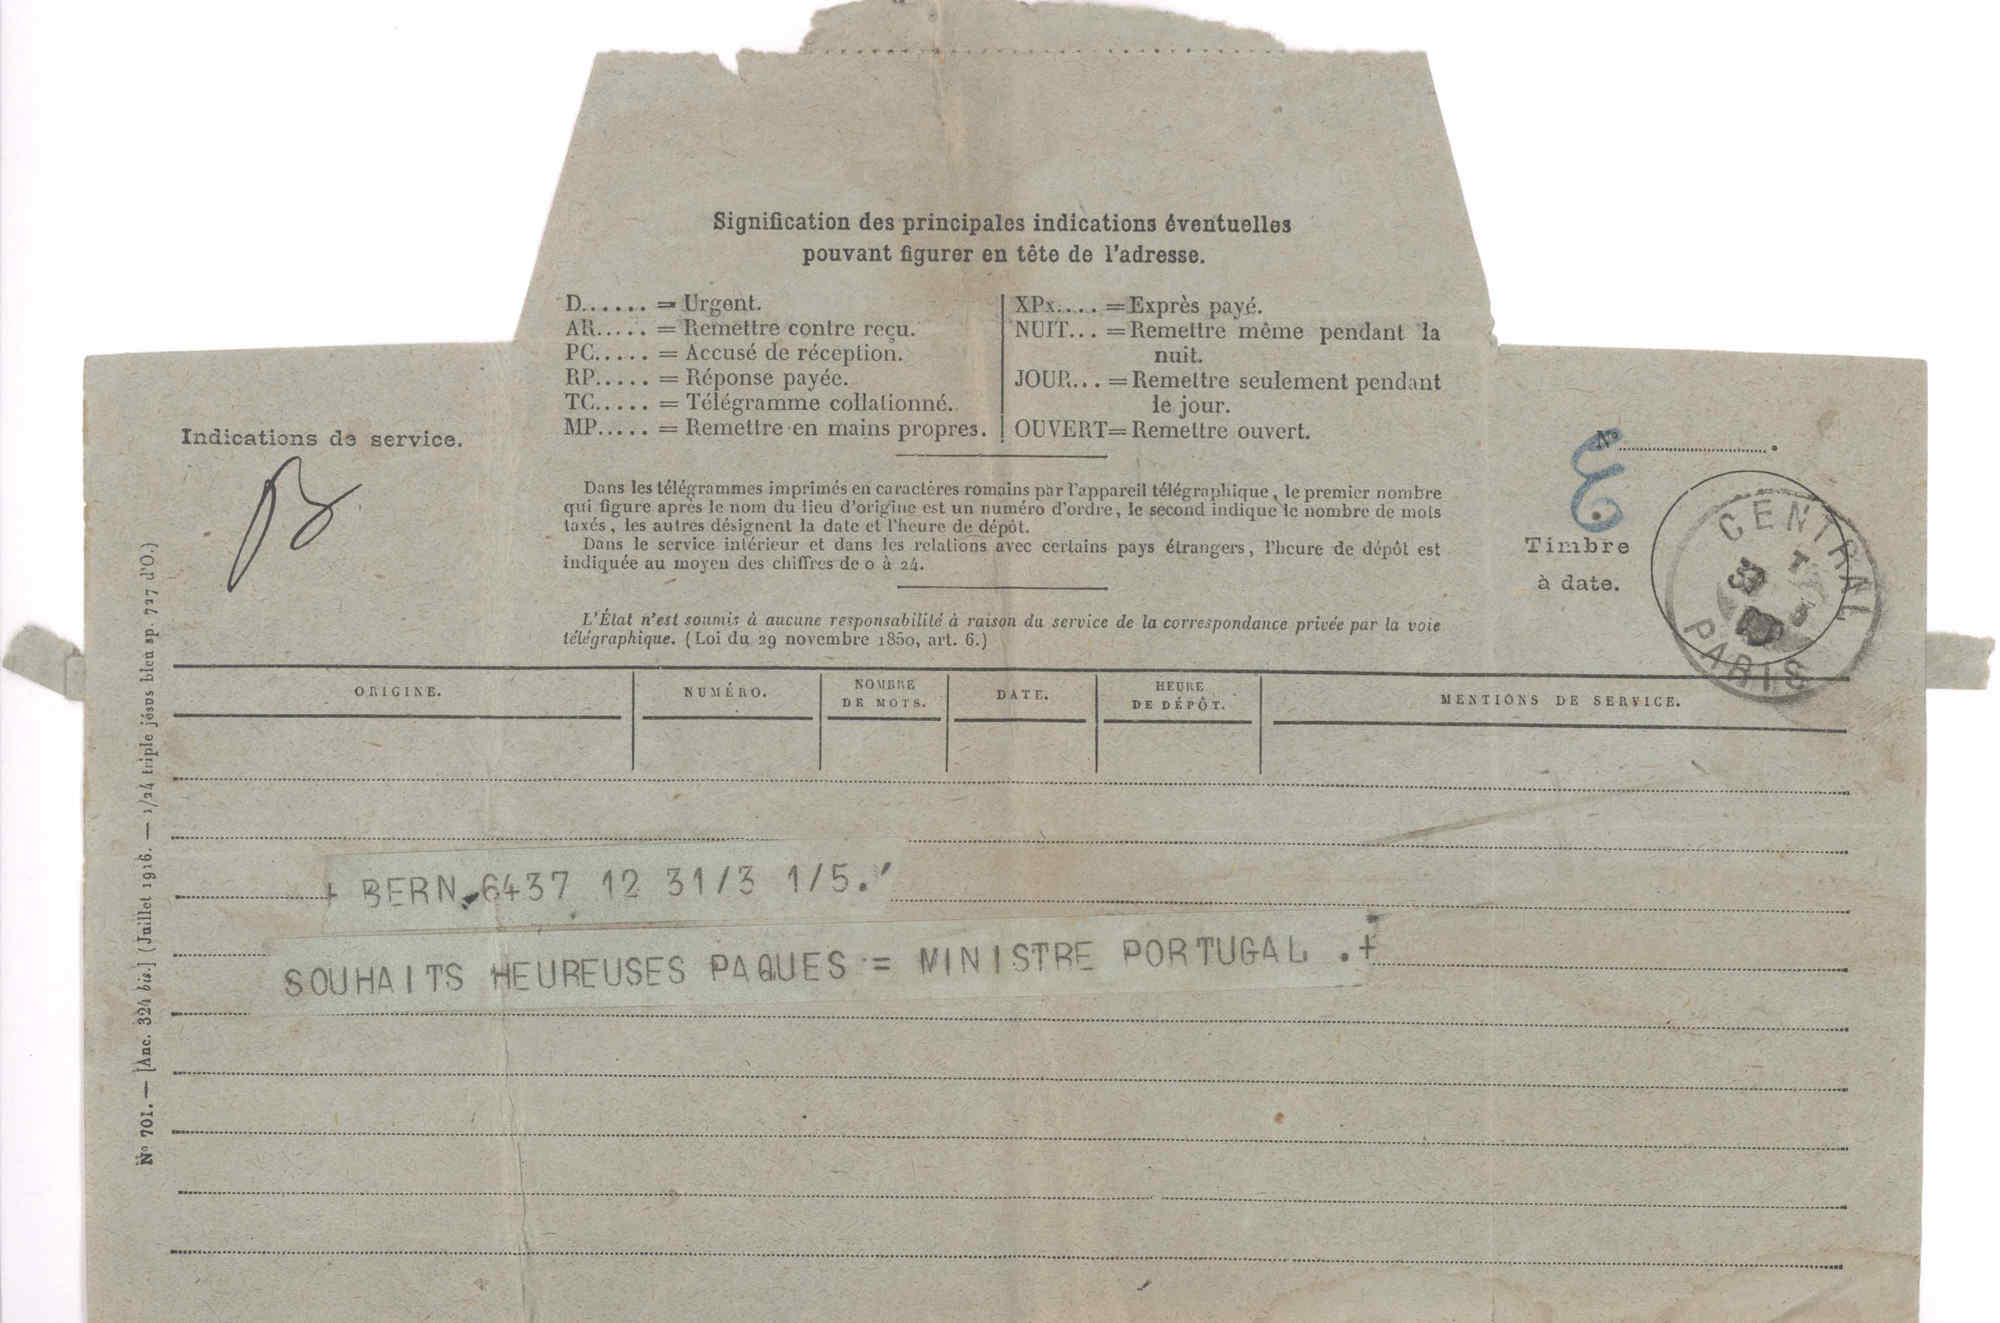 Signification des principales indications éventuelles
pouvant figurer en tête de l'adresse.
D...... = Urgent.
AR..... = Remettre contre reçu.
PC..... = Accusé de réception.
RP..... = Réponse payée.
TC..... = Télégramme collationné.
MP..... = Remettre en mains propres.
XPx.... = Exprès payé.
NUIT... = Remettre même pendant la
nuit.
JOUR... = Remettre seulement pendant
le jour.
OUVERT= Remettre ouvert.
Indications de service.
N°
Dans les télégrammes imprimés en caractères romains par l'appareil télégraphique, le premier nombre
qui figure après le nom du lieu d'origine est un numéro d'ordre, le second indique le nombre de mots
taxés, les autres désignent la date et l'heure de dépôt.
Dans le service intérieur et dans les relations avec certains pays étrangers, l'heure de dépôt est
indiquée au moyen des chiffres de 0 à 24.
L'État n'est soumis à aucune responsabilité à raison du service de la correspondance privée par la voie
télégraphique. (Loi du 29 novembre 1850, art. 6.)
Timbre
à date.
CENTRAL
PARIS
ORIGINE.
NUMÉRO.
NOMBRE
DE MOTS.
DATE.
HEURE
DE DÉPÔT.
MENTIONS DE SERVICE.
+ BERN 6437 12 31/3 1/5.'
SOUHAITS HEUREUSES PAQUES = MINISTRE PORTUGAL .+
N° 701. — [Anc. 324 bis.] (Juillet 1916. — 1/24 triple jésus bleu sp. 727 d'O.)